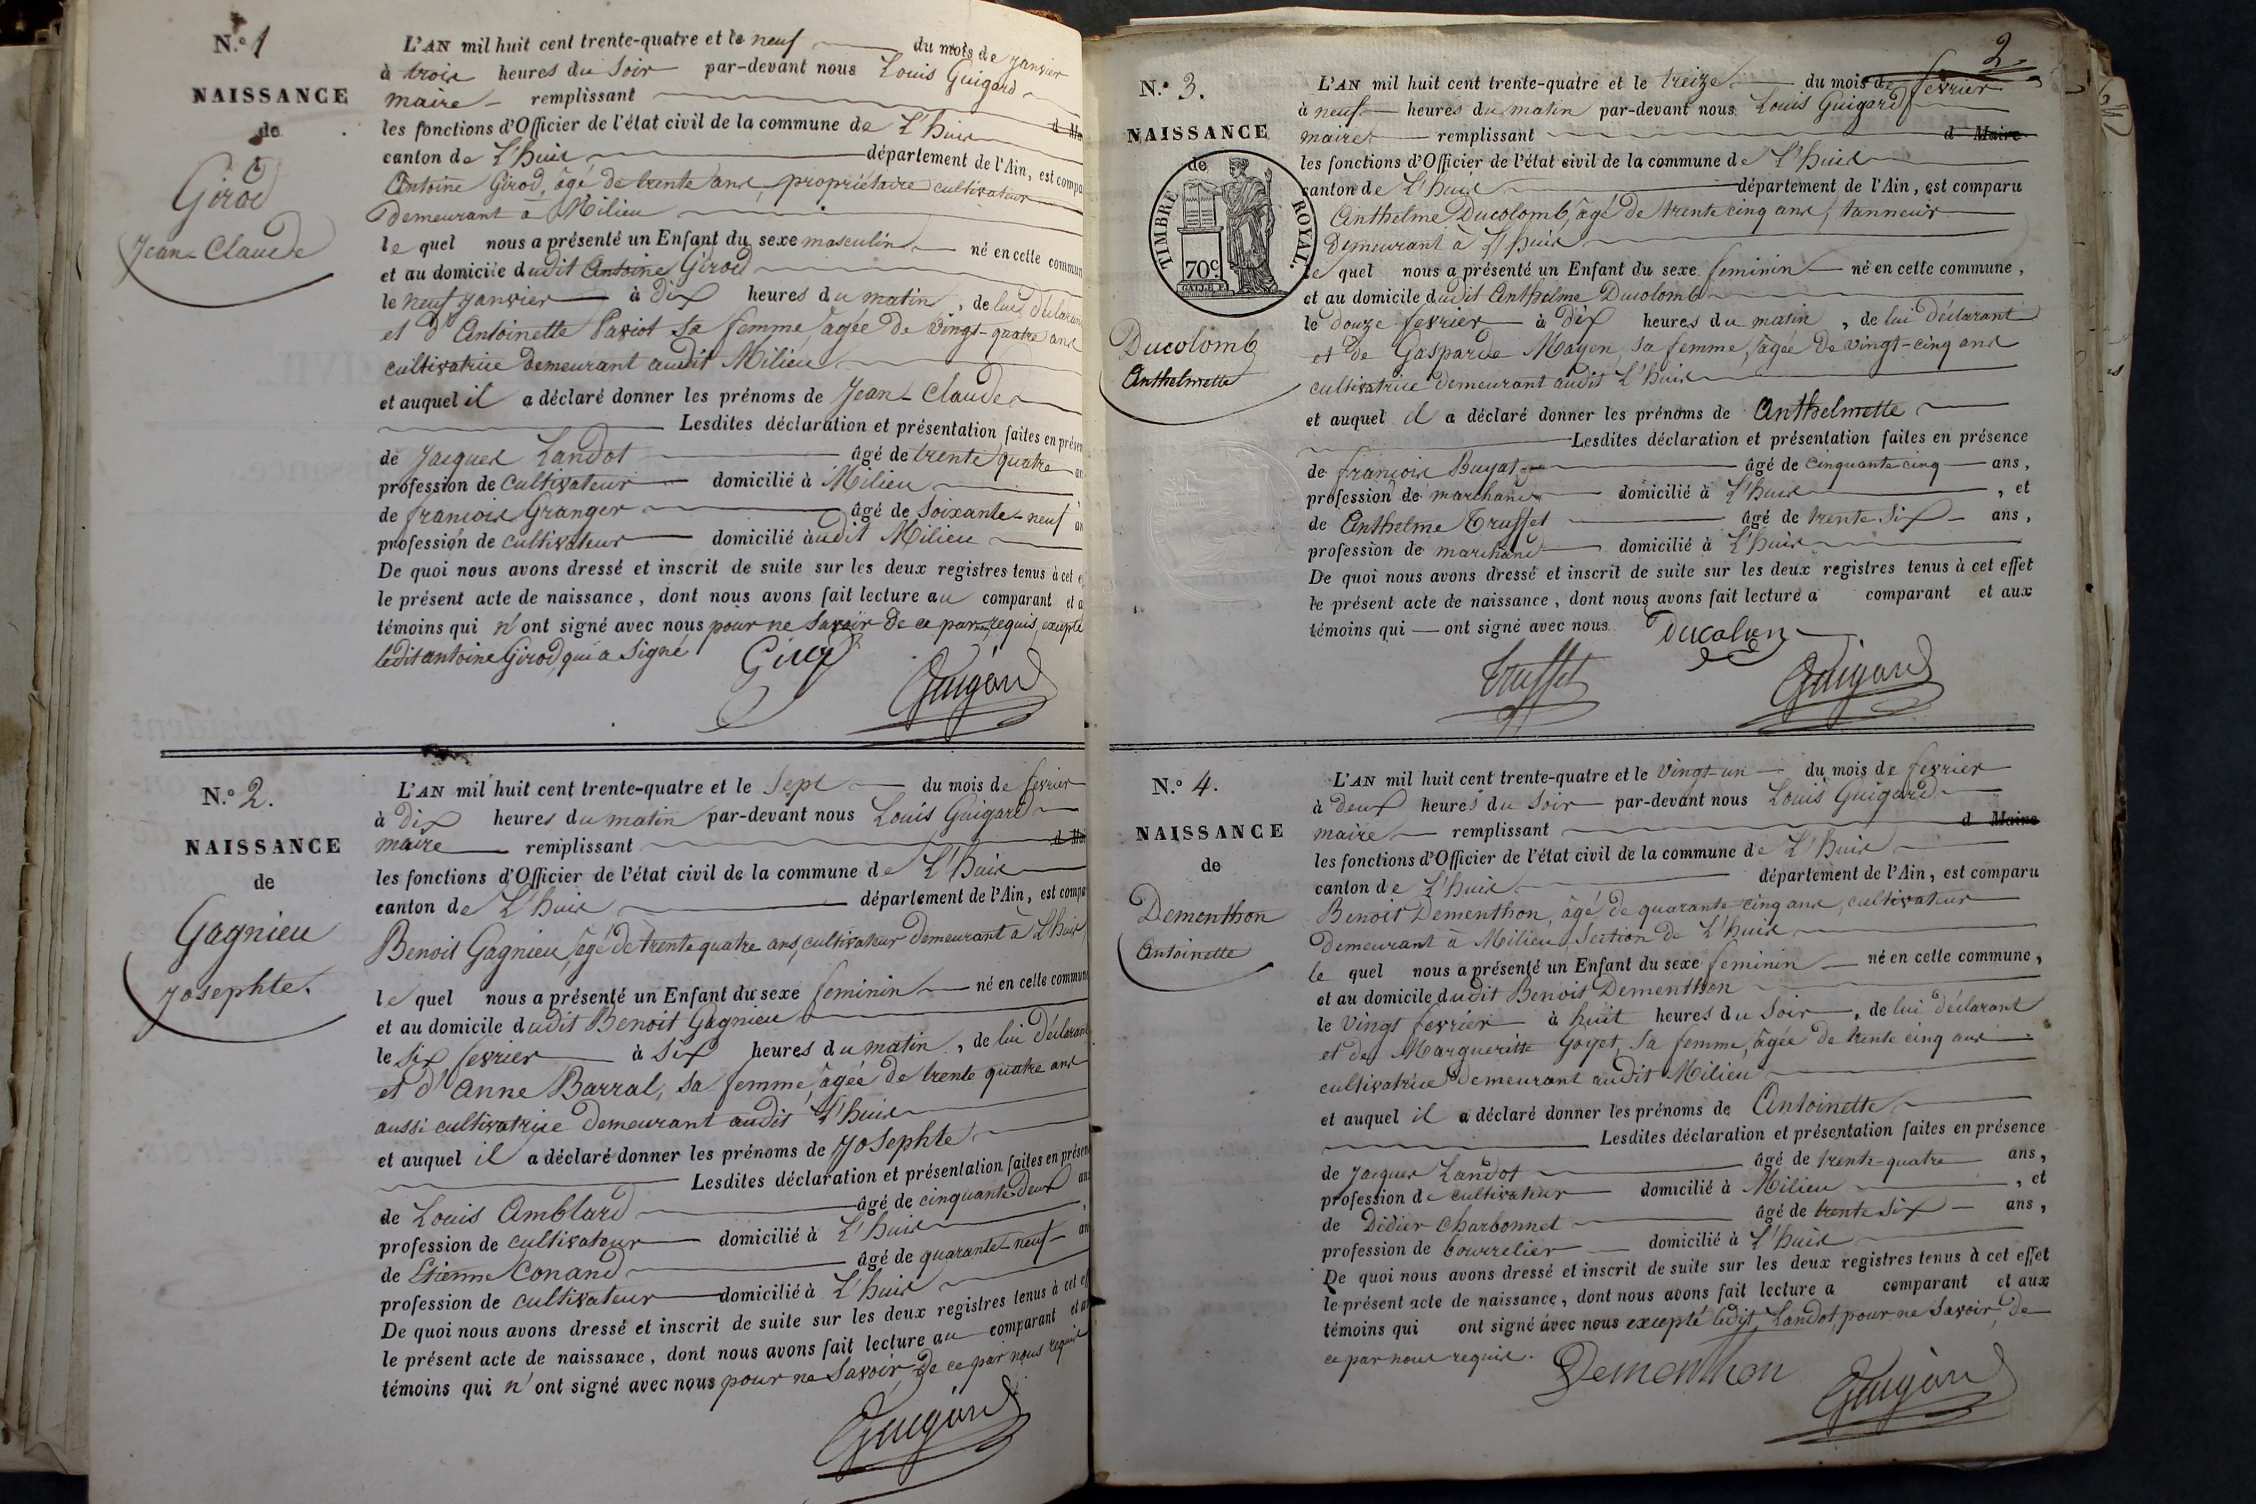 N.º 1
NAISSANCE
de
Girod
Jean-Claude
L'AN mil huit cent trente-quatre et le neuf du mois de janvier
à trois heures du soir par-devant nous Louis Guigard
maire remplissant d Ma
les fonctions d'Officier de l'état civil de la commune de L'huis
canton de L'huis département de l'Ain, est compa
Antoine Girod, âgé de trente ans, propriétaire cultivateur
demeurant à Milieu
le quel nous a présenté un Enfant du sexe masculin né en cette commun
et au domicile dudit Antoine Girod
le neuf janvier à dix heures du matin, de lui déclarant
et d'Antoinette Paviot sa femme, âgée de vingt-quatre ans
cultivatrice demeurant audit Milieu
et auquel il a déclaré donner les prénoms de Jean-Claude
Lesdites déclaration et présentation faites en présen
de Jacques Landot âgé de trente quatre an
profession de cultivateur domicilié à Milieu
de françois Granger âgé de soixante-neuf an
profession de cultivateur domicilié audit Milieu
De quoi nous avons dressé et inscrit de suite sur les deux registres tenus à cet e
le présent acte de naissance, dont nous avons fait lecture au comparant et a
témoins qui n'ont signé avec nous pour ne savoir de ce par nous requis, excepté
ledit antoine Girod, qui a signé
Girod
Guigard
N.º 2.
NAISSANCE
de
Gagnieu
Josephte.
L'AN mil huit cent trente-quatre et le sept du mois de fevrier
à dix heures du matin par-devant nous Louis Guigard
maire remplissant d Ma
les fonctions d'Officier de l'état civil de la commune de L'huis
canton de L'huis département de l'Ain, est compa
Benoit Gagnieu, âgé de trente quatre ans, cultivateur demeurant à L'huis
le quel nous a présenté un Enfant du sexe feminin né en cette commune
et au domicile dudit Benoit Gagnieu
le six fevrier à six heures du matin, de lui déclarant
et d'Anne Barral, sa femme, âgée de trente quatre ans
aussi cultivatrice demeurant audit L'huis
et auquel il a déclaré donner les prénoms de Josephte
Lesdites déclaration et présentation faites en présen
de Louis Amblard âgé de cinquante-deux ans
profession de cultivateur domicilié à L'huis
de Etienne Conand âgé de quarante-neuf an
profession de cultivateur domicilié à L'huis
De quoi nous avons dressé et inscrit de suite sur les deux registres tenus à cet ef
le présent acte de naissance, dont nous avons fait lecture au comparant et a
témoins qui n'ont signé avec nous pour ne savoir, de ce par nous requis
Guigard
2
N.º 3.
NAISSANCE
de
TIMBRE ROYAL.
70c.
Ducolomb
Anthelmette
L'AN mil huit cent trente-quatre et le treize du mois de fevrier
à neuf heures du matin par-devant nous Louis Guigard
maire remplissant d Maire
les fonctions d'Officier de l'état civil de la commune de L'huis
canton de L'huis département de l'Ain, est comparu
Anthelme Ducolomb, âgé de trente cinq ans, tanneur
demeurant à L'huis
le quel nous a présenté un Enfant du sexe feminin né en cette commune,
et au domicile dudit Anthelme Ducolomb
le douze fevrier à dix heures du matin, de lui déclarant
et de Gasparde Mayen, sa femme, âgée de vingt-cinq ans
cultivatrice demeurant audit L'huis
et auquel il a déclaré donner les prénoms de Anthelmette
Lesdites déclaration et présentation faites en présence
de françois Buyat âgé de cinquante cinq ans,
profession de marchand domicilié à L'huis, et
de Anthelme Truffet âgé de trente six ans,
profession de marchand domicilié à L'huis
De quoi nous avons dressé et inscrit de suite sur les deux registres tenus à cet effet
le présent acte de naissance, dont nous avons fait lecture a comparant et aux
témoins qui ont signé avec nous.
Truffet
Guigard
N.º 4.
NAISSANCE
de
Dementhon
Antoinette
L'AN mil huit cent trente-quatre et le vingt-un du mois de fevrier
à deux heures du soir par-devant nous Louis Guigard
maire remplissant d Maire
les fonctions d'Officier de l'état civil de la commune de L'huis
canton de L'huis département de l'Ain, est comparu
Benoit Dementhon, âgé de quarante-cinq ans, cultivateur
demeurant à Milieu Section de L'huis
le quel nous a présenté un Enfant du sexe feminin né en cette commune,
et au domicile dudit Benoit Dementhon
le vingt fevrier à huit heures du soir, de lui déclarant
et de Margueritte Goyet, sa femme, âgée de trente cinq ans
cultivatrice demeurant audit Milieu
et auquel il a déclaré donner les prénoms de Antoinette
Lesdites déclaration et présentation faites en présence
de Jacques Landot âgé de trente-quatre ans,
profession de cultivateur domicilié à Milieu, et
de Didier Charbonnet âgé de trente six ans,
profession de bourrelier domicilié à L'huis
De quoi nous avons dressé et inscrit de suite sur les deux registres tenus à cet effet
le présent acte de naissance, dont nous avons fait lecture a comparant et aux
témoins qui ont signé avec nous excepté ledit Landot, pour ne savoir, de
ce par nous requis.
Dementhon
Guigard